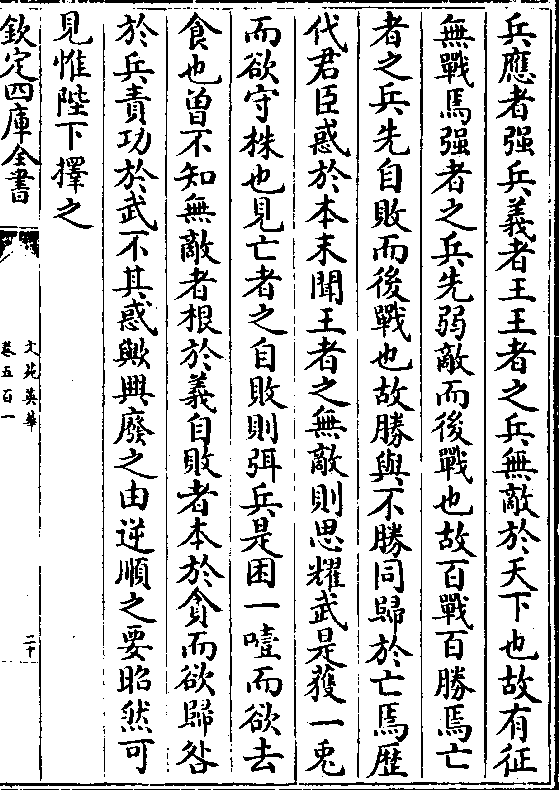 兵應者强兵義者王王者之兵無敵於天下也故有征
無戰焉强者之兵先弱敵而後戰也故百戰百勝焉亡
者之兵先自敗而後戰也故勝與不勝同歸於亡焉歷
代君臣惑於本末聞王者之無敵則思耀武是獲一兎
而欲守株也見亡者之自敗則弭兵是困一噎而欲去
食也曽不知無敵者根於義自敗者本於貪而欲歸咎
於兵責功於武不其惑歟興廢之由逆順之要昭然可
見惟陛下擇之
欽定四庫全書
文苑英華
卷五百一
二十